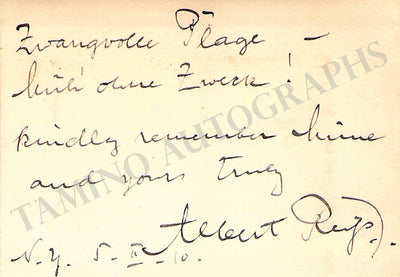 Zwangvolle Plage –
Müh' ohne Zweck!
kindly remember Mime
and yours truly
Albert Reiss.
N.Y. 5. II. 10.
TAMINO AUTOGRAPHS